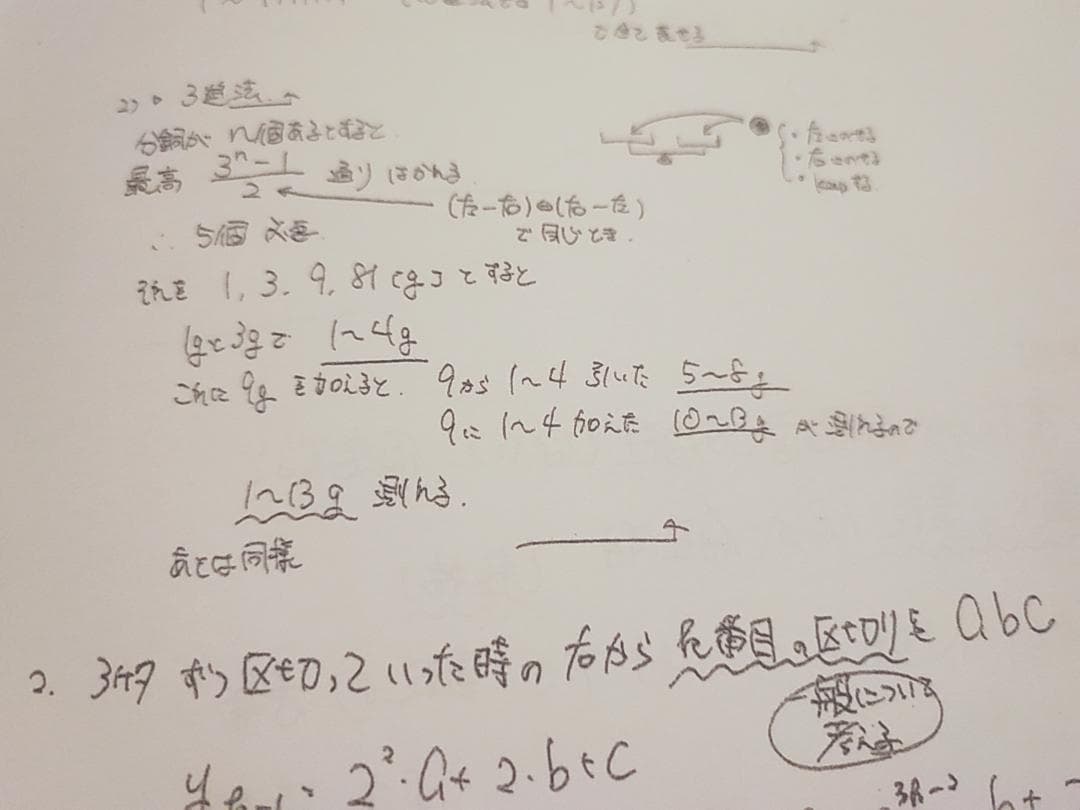 で全て表せる
2) ○ 3進法
分銅が n個あるとすると
最高 (3^n − 1)/2 通り はかれる
(左−右)と(右−左)
で同じとき.
・左にのせる
・右にのせる
・keepする
∴ 5個 必要
それを 1, 3, 9, 81 [g] とすると
1gと3gで 1〜4g
これに 9g を加えると、 9から 1〜4 引いた 5〜8g
9に 1〜4 加えた 10〜13g が測れるので
1〜13g 測れる.
あとは同様
2. 3ケタ ずつ 区切っていった時の 右から k番目の区切りを abc
一般について
考える
2²・a + 2・b + c